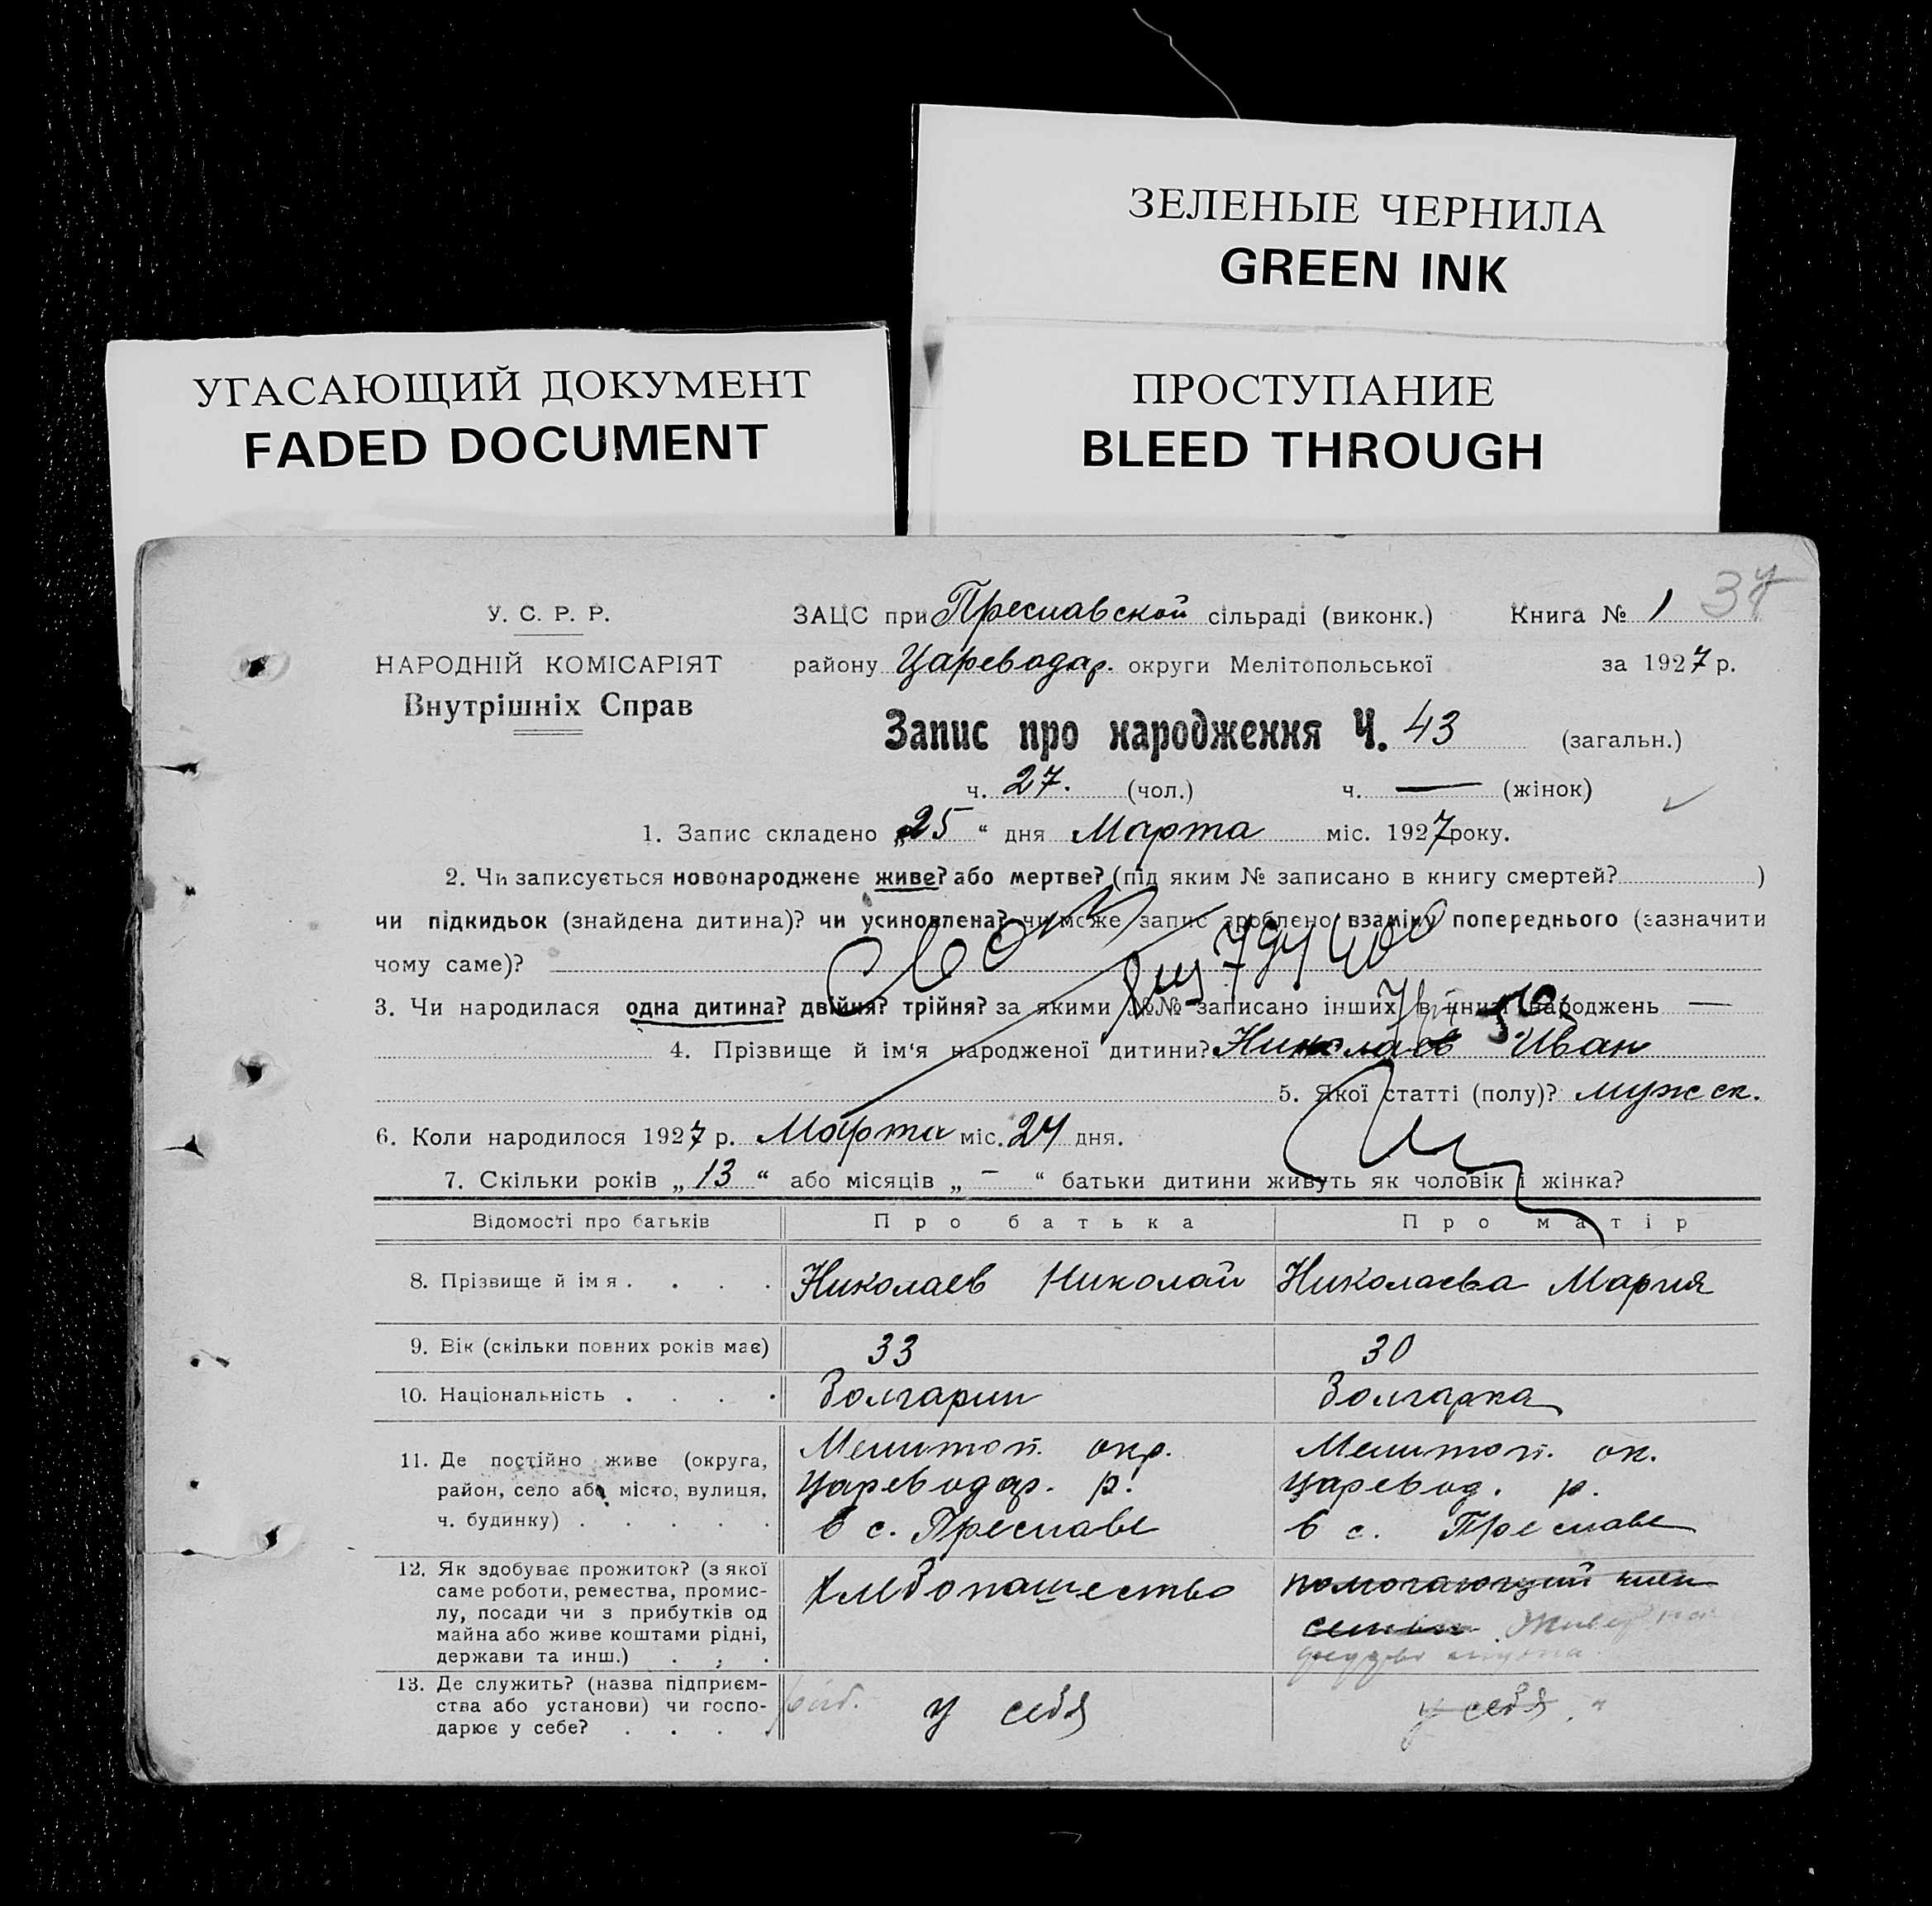 ЗЕЛЕНЫЕ ЧЕРНИЛА
GREEN INK
УГАСАЮЩИЙ ДОКУМЕНТ
FADED DOCUMENT
ПРОСТУПАНИЕ
BLEED THROUGH
У. С. Р. Р.
НАРОДНІЙ КОМІСАРІЯТ
Внутрішніх Справ
ЗАЦС при Преславской сільраді (виконк.) Книга № 1 37
району Цареводар. округи Мелітопольської за 1927 р.
Запис про народження Ч. 43 (загальн.)
ч. 27. (чол.) ч. — (жінок)
1. Запис складено „25“ дня Марта міс. 1927 року.
2. Чи записується новонароджене живе? або мертве? (під яким № записано в книгу смертей? )
чи підкидьок (знайдена дитина)? чи усиновлена? чи може запис зроблено взаміну попереднього (зазначити
чому саме)?
3. Чи народилася одна дитина? двійня? трійня? за якими №№ записано інших в книзі народжень —
4. Прізвище й ім‘я народженої дитини? Николаев Иван
5. Якої статті (полу)? мужск.
6. Коли народилося 1927 р. Марта міс. 24 дня.
7. Скільки років „ 13 “ або місяців „ – “ батьки дитини живуть як чоловік і жінка?
Відомості про батьків Про батька Про матір
8. Прізвище й імя . . . . Николаев Николай Николаева Мария
9. Вік (скільки повних років має) 33 30
10. Національність . . . . Болгарин Болгарка
11. Де постійно живе (округа, район, село або місто, вулиця, ч. будинку) . . . . .
Мелитоп. окр.
Цареводар. р.
в с. Преславе
Мелитоп. ок.
Царевод. р.
в с. Преславе
12. Як здобуває прожиток? (з якої
саме роботи, ремества, промис-
лу, посади чи з прибутків од
майна або живе коштами рідні,
держави та инш.) . , .
Хлебопашество
помогающий член
семьи
13. Де служить? (назва підприєм-
ства або установи) чи госпо-
дарює у себе? . . . .
у себя
у себя "